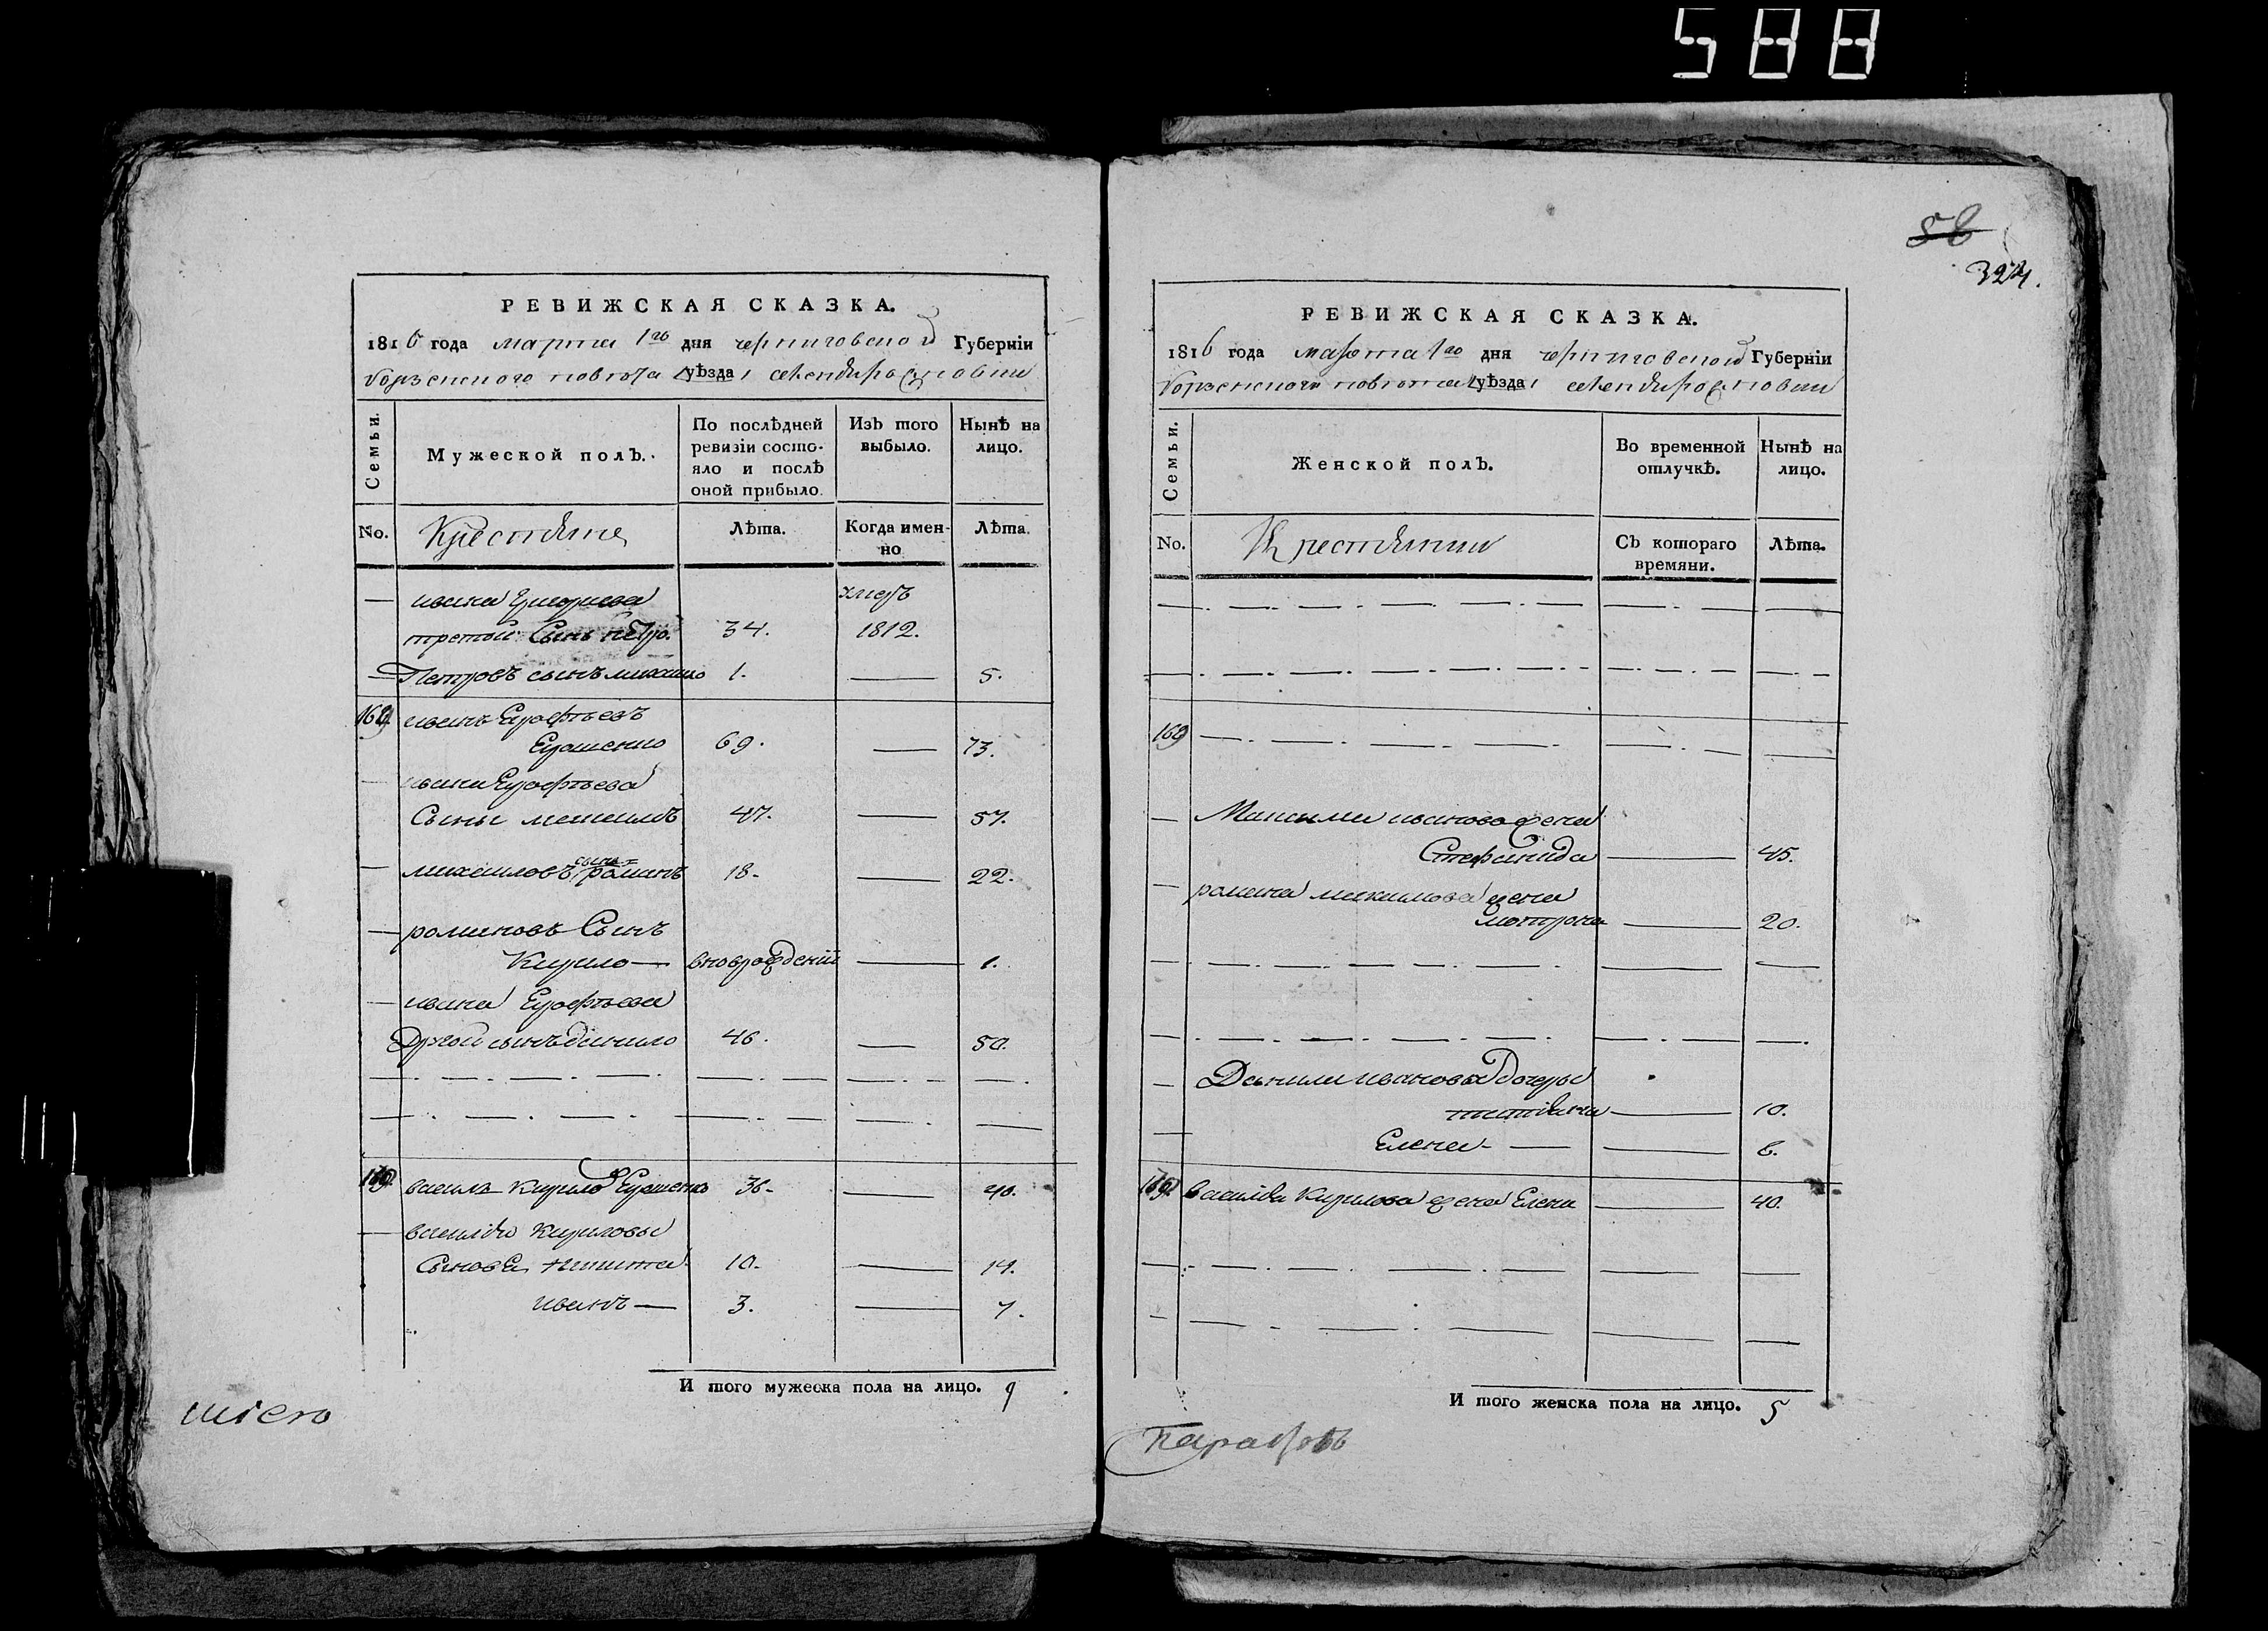 588
РЕВИЖСКАЯ СКАЗКА.
1816 года марта 1го дня черниговской Губерніи
борзенского повета уѣзда
Семьи.
Мужеской полъ.
По послѣдней ревизіи состояло и послѣ оной прибыло.
Изъ того выбыло.
Нынѣ на лицо.
No.
Крестьяне
Лѣта.
Когда именно
Лѣта.
— ивана Григориева умеръ
третой Сынъ петро. 34. 1812.
— Петровъ сынъ михайло 1. — 5.
169 иванъ Ерофѣевъ
Ерошенко 69. — 73.
— ивана Ерофѣева
Сыны 47. — 51.
— сынъ романъ 18. — 22.
— романовъ Сынъ
Кирило — вноврожденній — 1.
— ивана Ерофѣева
Другой сынъ данило 46. — 50.
170 василь Кирилов Ерошенко 36. — 40.
— василія Кирилова
Сыновя никита 10. — 14.
иванъ — 3. — 7.
И того мужеска пола на лицо. 9
58
324.
РЕВИЖСКАЯ СКАЗКА.
1816 года марта 1го дня черниговской Губерніи
борзенского повета уѣзда
Семьи.
Женской полъ.
Во временной отлучкѣ.
Нынѣ на лицо.
No.
Крестьянки
Съ котораго времяни.
Лѣта.
169
— Максима иванова жена
Стефанида — 45.
— романа максимова жена
мотрона — 20.
— Данили иванова дочеры
татіяна — 10.
— Елена — — 6.
170 василія Кирилова жена Елена — 40.
И того женска пола на лицо. 5